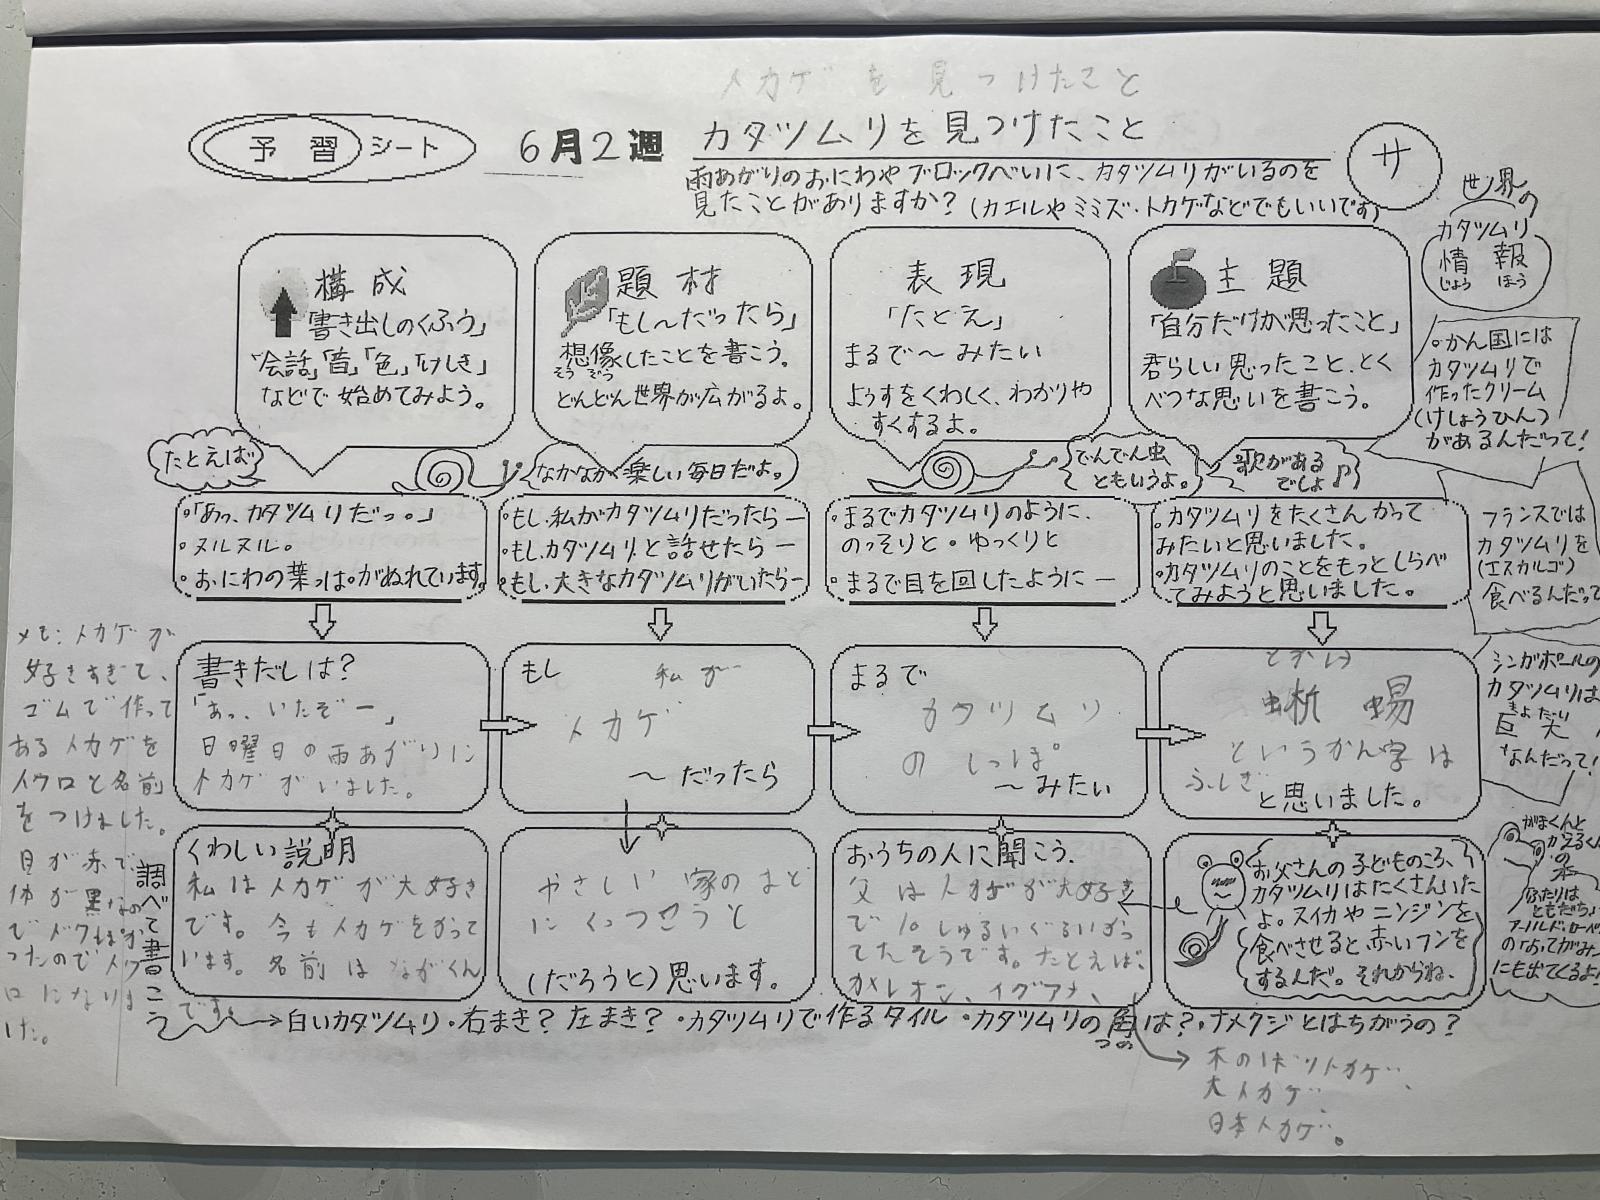 トカゲを見つけたこと
予習シート
6月2週
カタツムリを見つけたこと
サ
雨あがりのおにわやブロックべいに、カタツムリがいるのを
見たことがありますか?(カエルやミミズ・トカゲなどでもいいです)
構成
「書き出しのくふう」
「会話」「音」「色」「けしき」
などで始めてみよう。
題材
「もし〜だったら」
想像したことを書こう。
そうぞう
どんどん世界が広がるよ。
表現
「たとえ」
まるで〜みたい
ようすをくわしく、わかりや
すくするよ。
主題
「自分だけが思ったこと」
君らしい思ったこと、とく
べつな思いを書こう。
世界の
カタツムリ
情報
じょうほう
・かん国には
カタツムリで
作ったクリーム
(けしょうひん)
があるんだって!
フランスでは
カタツムリを
(エスカルゴ)
食べるんだって
シンガポールの
カタツムリは
きょだい
巨大
なんだって!
たとえば
なかなか楽しい毎日だよ。
でんでん虫
ともいうよ。
歌がある
でしょ♪
・「あっ、カタツムリだっ。」
・ヌルヌル。
・おにわの葉っぱがぬれています。
・もし、私がカタツムリだったら―
・もし、カタツムリと話せたら―
・もし、大きなカタツムリがいたら―
・まるでカタツムリのように、
のっそりと・ゆっくりと
・まるで目を回したように―
・カタツムリをたくさんかって
みたいと思いました。
・カタツムリのことをもっとしらべ
てみようと思いました。
書きだしは?
「あっ、いたぞー」
日曜日の雨あがりに
トカゲがいました。
もし 私が
トカゲ
〜だったら
まるで
カタツムリ
のしっぽ
〜みたい
とかげ
蜥蜴
というかん字は
ふしぎ
と思いました。
くわしい説明
私はトカゲが大好き
です。今もトカゲをかって
います。名前はながくん
です。
やさしい家のまど
にくっつこうと
(だろうと)思います。
おうちの人に聞こう。
父はトカゲが大好き
で10しゅるいぐらいかっ
てたそうです。たとえば、
カメレオン、イグアナ、
木のぼりトカゲ、
大トカゲ、
日本トカゲ。
お父さんの子どものころ、
カタツムリはたくさんいた
よ。スイカやニンジンを
食べさせると赤いフンを
するんだ。それからね、
がまくんと
かえるくん
の本
ふたりは
ともだち
アーノルド・ローベル
の「おてがみ」
にも出てくるよ!
メモ:トカゲが
好きすぎて、
ゴムで作って
あるトカゲを
トクロと名前
をつけました。
目が赤で
体が黒なの
調べて書こう
白いカタツムリ・右まき?左まき?・カタツムリで作るタイル・カタツムリの角は?・ナメクジとはちがうの?
つの